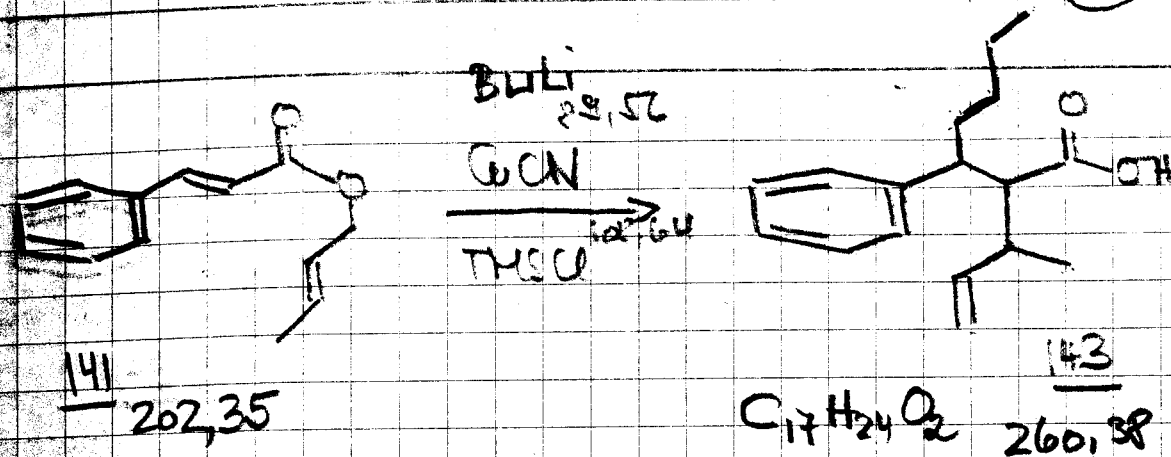 BuLi
89,56
CuCN
TMSCl 108,64
O
O
O
OH
141
202,35
143
C17H24O2 260,38